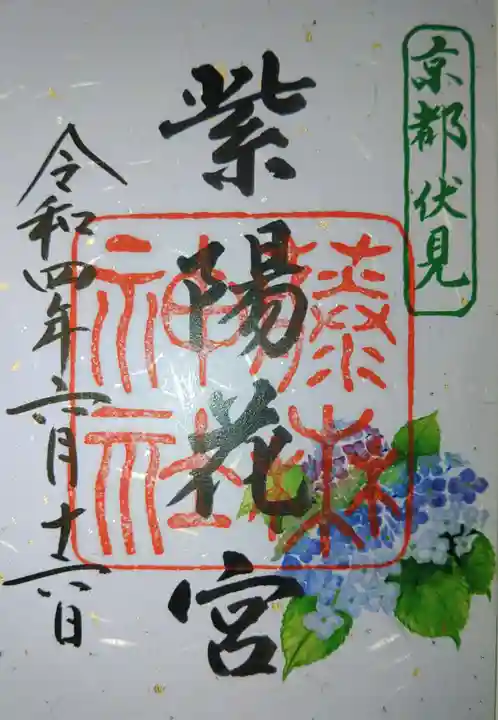 京都伏見
紫陽花宮
藤森神社
令和四年六月十六日